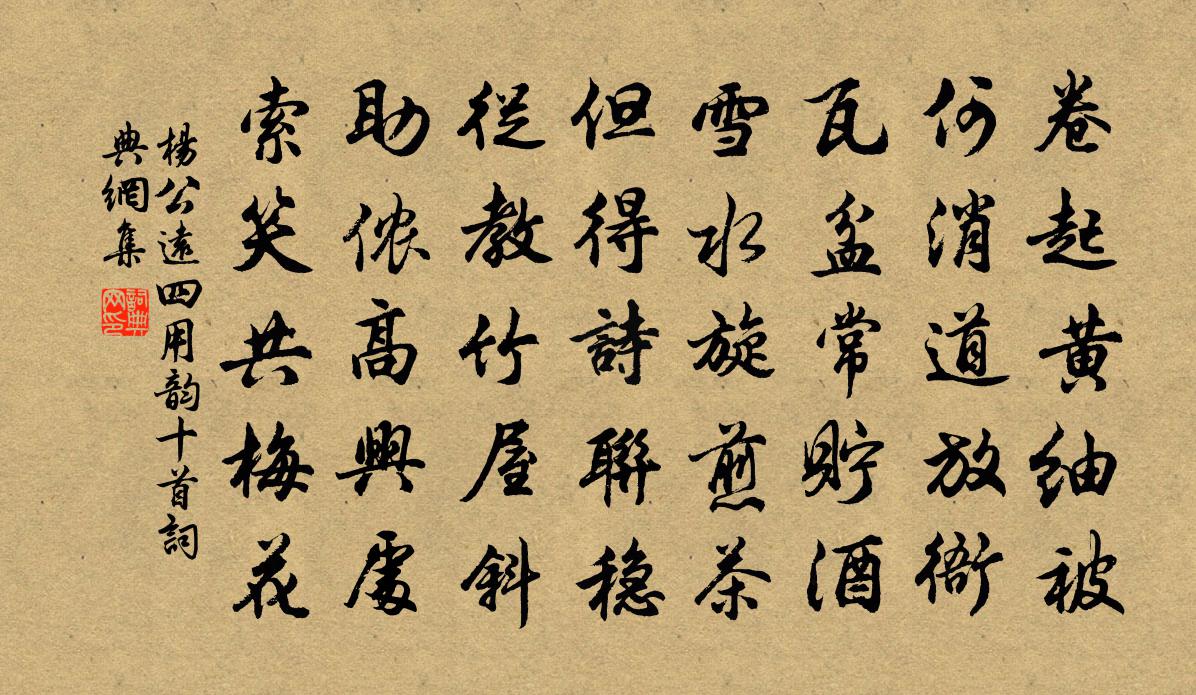 卷起黄紬被
何消道放衙
瓦盆常貯酒
雪水旋煎茶
但得詩聯穏
從教竹屋斜
助侬高興處
索笑共梅花
楊公遠四用韵十首詞
典網集
詞典
网印